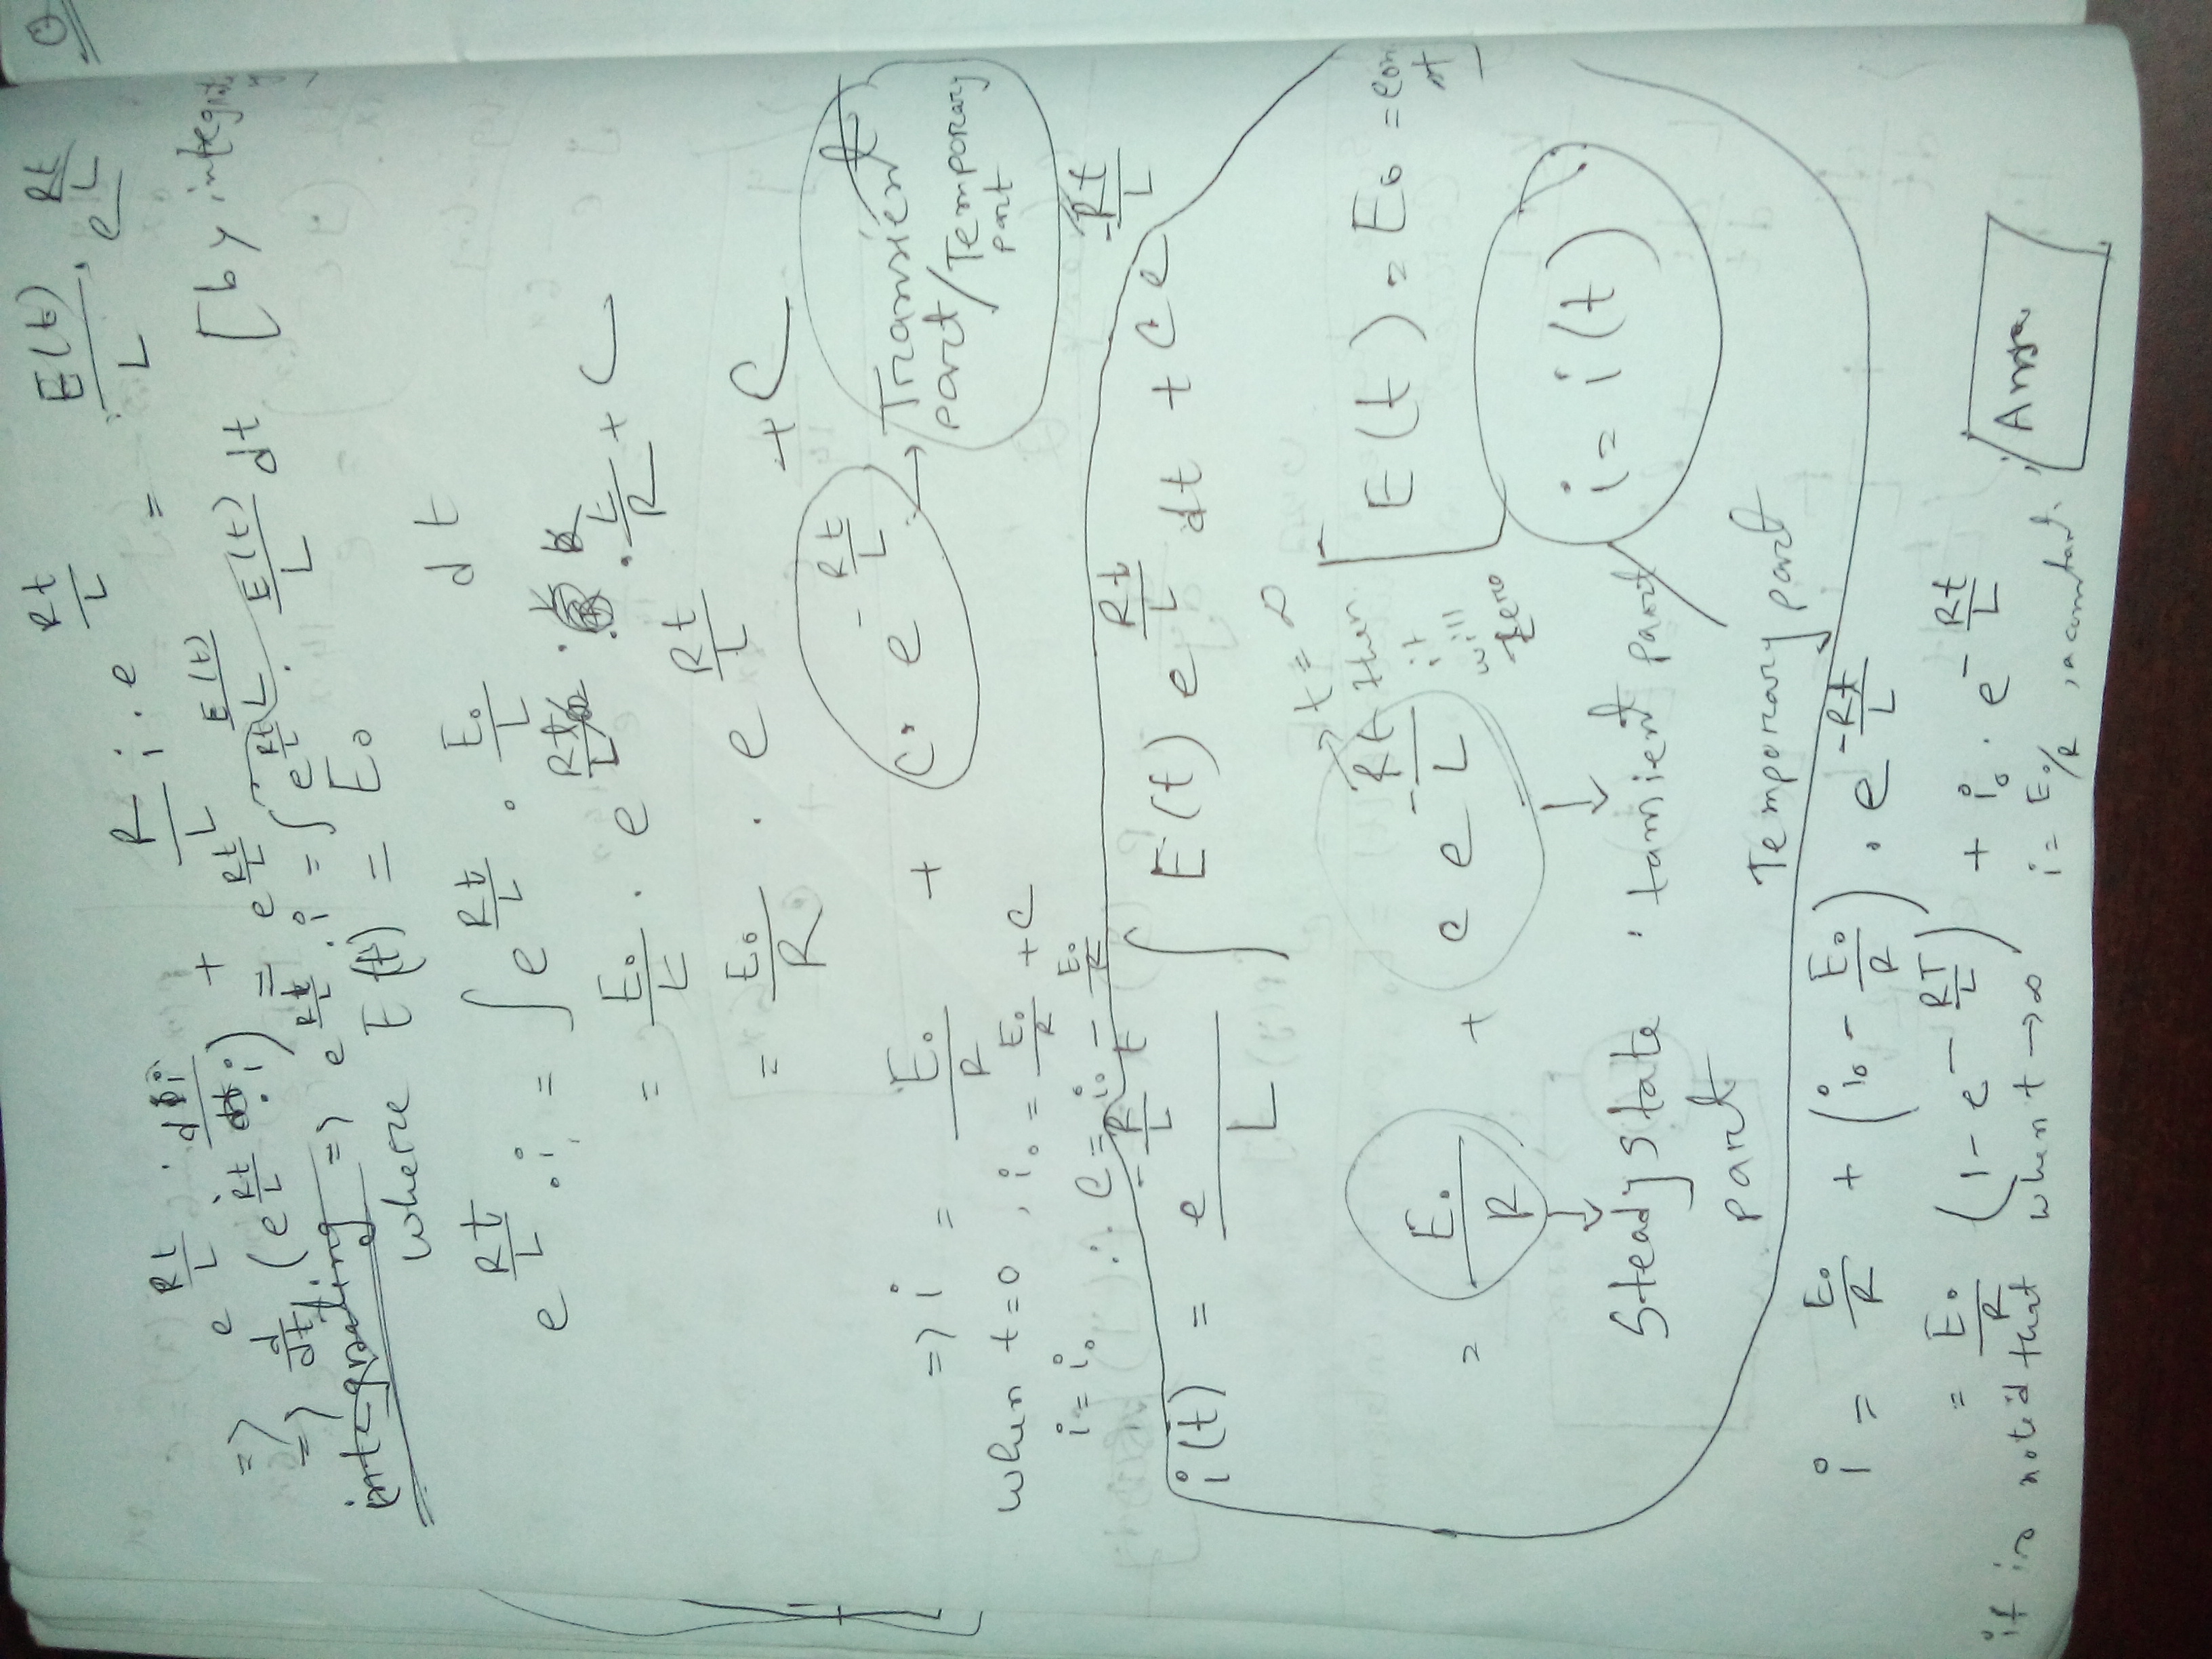 => e^{Rt/L} . di/dt + R/L i . e^{Rt/L} = E(t)/L . e^{Rt/L}
=> d/dt (e^{Rt/L} . i) = e^{Rt/L} . E(t)/L
integrating => e^{Rt/L} . i = ∫ e^{Rt/L} . E(t)/L dt [by integrat
where E(t) = E₀
e^{Rt/L} . i = ∫ e^{Rt/L} . E₀/L dt
= E₀/L . e^{Rt/L} . L/R + C
= E₀/R . e^{Rt/L} + C
=> i = E₀/R + C. e^{-Rt/L} → Transient part/Temporary part
when t=0, i₀ = E₀/R + C
i = i₀ ∴ C = i₀ - E₀/R
i(t) = e^{-R/L t}/L ∫ E(t) e^{Rt/L} dt + c e^{-Rt/L}
t = ∞ then it will zero
= E₀/R + c e^{-Rt/L} [E(t) = E₀ = con st
↓ ↓ i = i(t)
Steady state part , tansient part
Temporary part
i = E₀/R + (i₀ - E₀/R) . e^{-Rt/L}
= E₀/R (1 - e^{-RT/L}) + i₀ . e^{-Rt/L}
it is noted that when t → ∞ i = E₀/R , a constant.
Answ